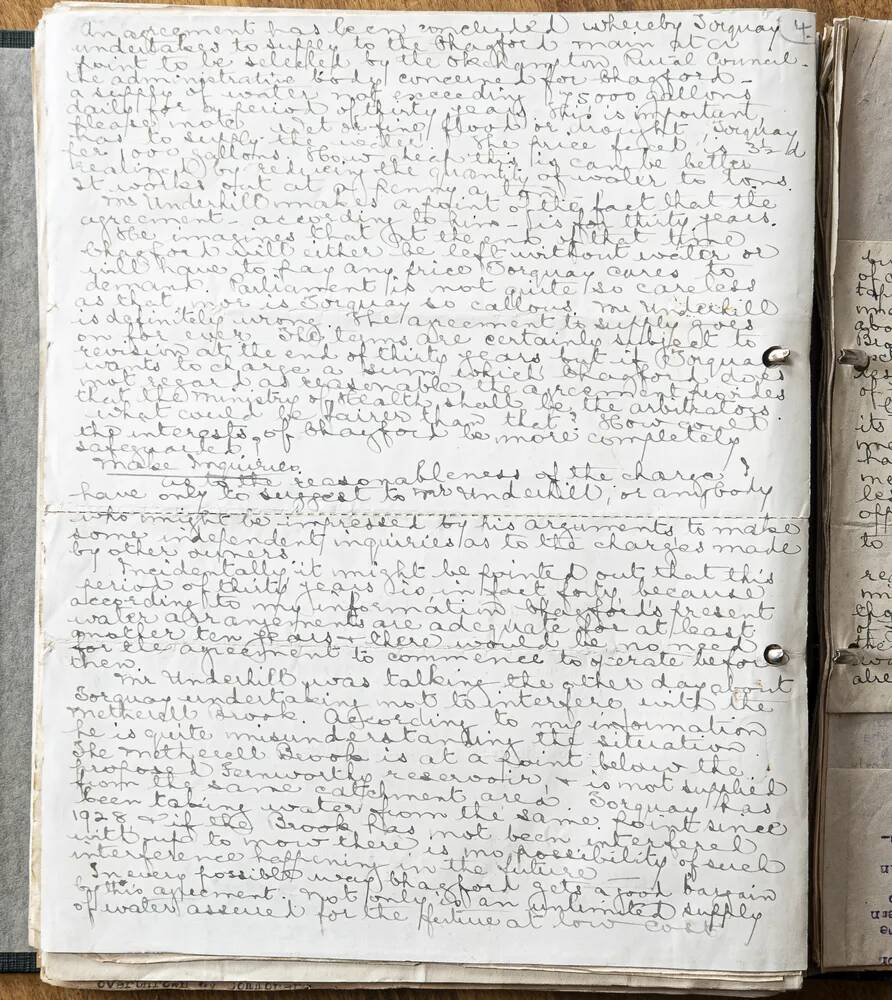 An agreement has been concluded whereby Torquay 4.
undertakes to supply to the Chagford main at a
point to be selected by the Okehampton Rural Council -
the administrative body concerned for Chagford -
a supply of water not exceeding 75000 gallons
daily for a period of thirty years. This is important,
please note. Wet or fine, flood or drought, Torquay
has to supply the water. The price fixed is 3½d
per 1000 gallons. How cheap this is can be better
realized by reducing the quantity of water to tons.
It works out at a penny a ton.
Mr Underhill makes a point of the fact that the
agreement - according to him - is for thirty years.
He imagines that at the end of that time
Chagford will either be left without water or
will have to pay any price Torquay cares to
demand. Parliament is not quite so careless
as that nor is Torquay so callous. Mr Underhill
is definitely wrong. The agreement to supply goes
on for ever. The terms are certainly subject to
revision at the end of thirty years but if Torquay
wants to charge a sum which Chagford does
not regard as reasonable the agreement provides
that the Ministry of Health shall be the arbitrators.
What could be fairer than that? How could
the interests of Chagford be more completely
safeguarded?
Make Inquiries.
As to the reasonableness of the charges I
have only to suggest to Mr Underhill, or anybody
who might be impressed by his arguments to make
some independent inquiries as to the charges made
by other owners.
Incidentally it might be pointed out that this
period of thirty years is in fact forty because
according to my information Chagford's present
water arrangements are adequate for at least
another ten years & there would be no need
for the agreement to commence to operate before
then.
Mr Underhill was talking the other day about
Torquay undertaking not to interfere with the
Metherell Brook. According to my information
he is quite misunderstanding the situation
The Metherell Brook is at a point below the
proposed Fernworthy reservoir & is not supplied
from the same catchment area. Torquay has
been taking water from the same point since
1928 & if the Brook has not been interfered
with up to now there is no possibility of such
interference happening in the future.
In every possible way Chagford gets a good bargain
by this agreement. Not only is an unlimited supply
of water assured for the future at low cost